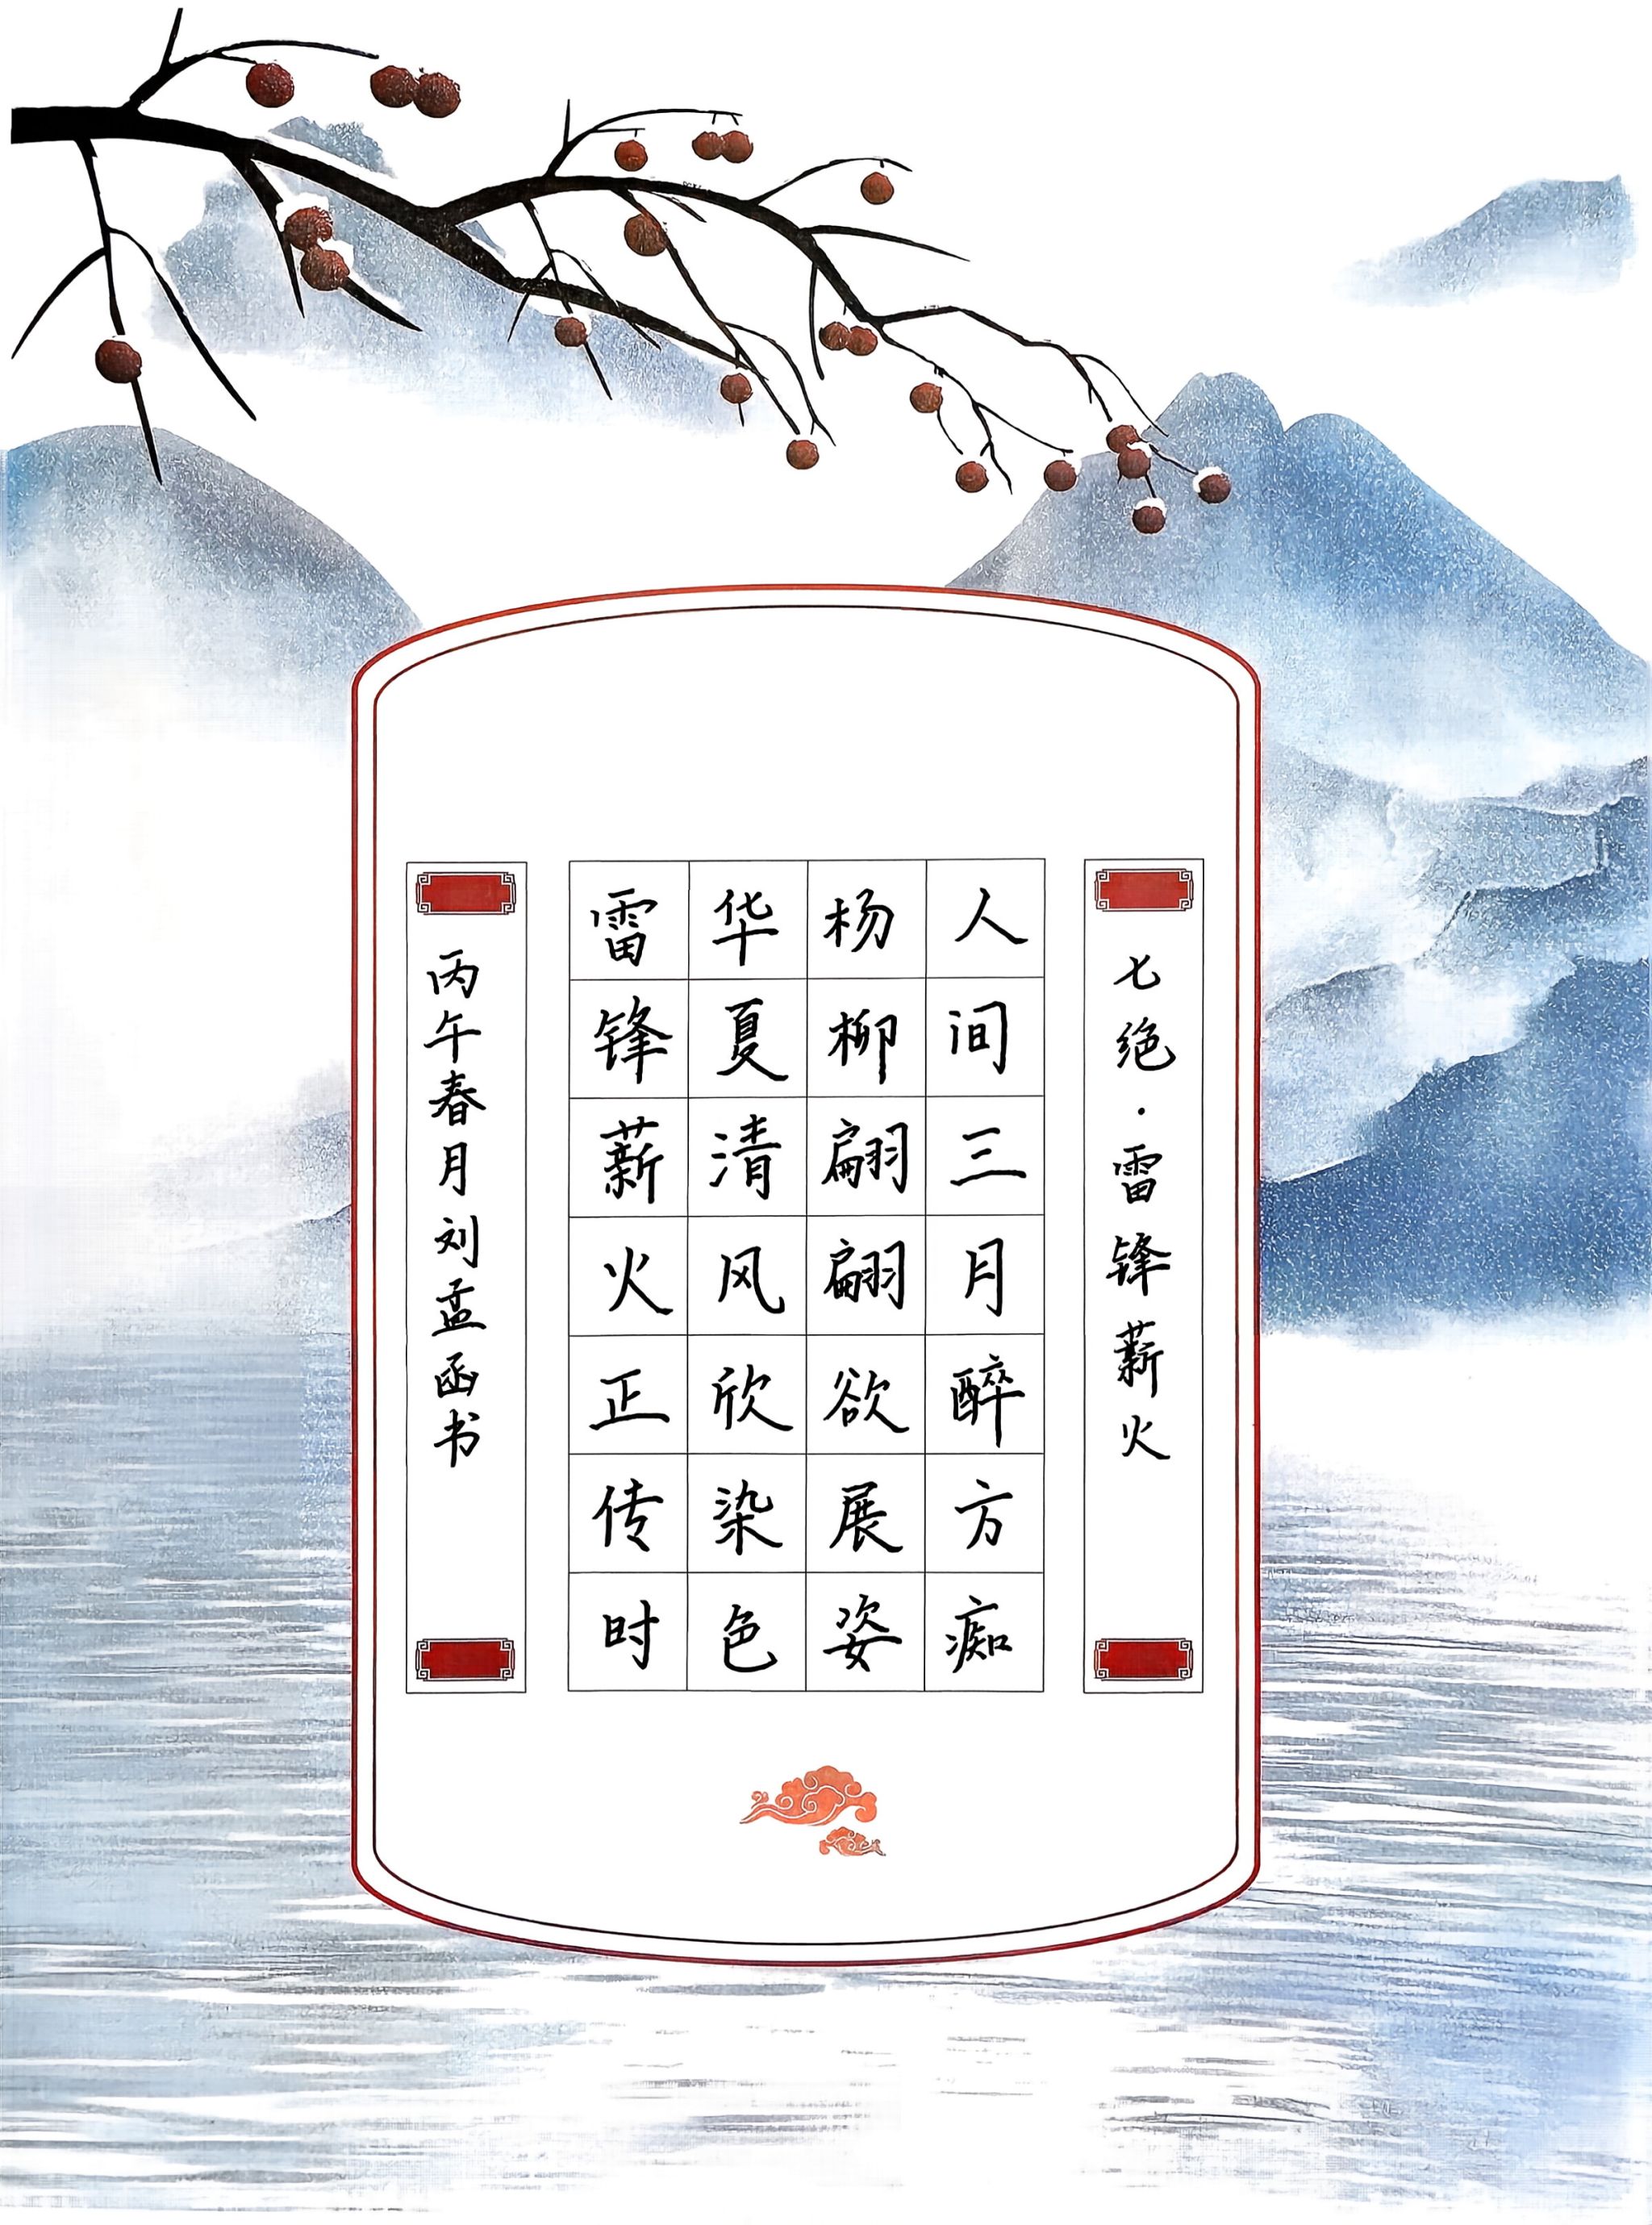 七绝·雷锋薪火
人间三月醉方痴
杨柳翩翩欲展姿
华夏清风欣染色
雷锋薪火正传时
丙午春月刘孟函书